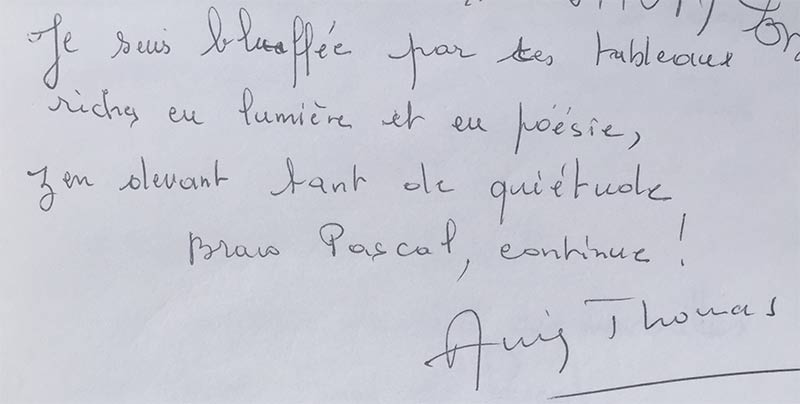 Je suis bluffée par tes tableaux
riches en lumière et en poésie,
zen devant tant de quiétude
Bravo Pascal, continue !
Thomas